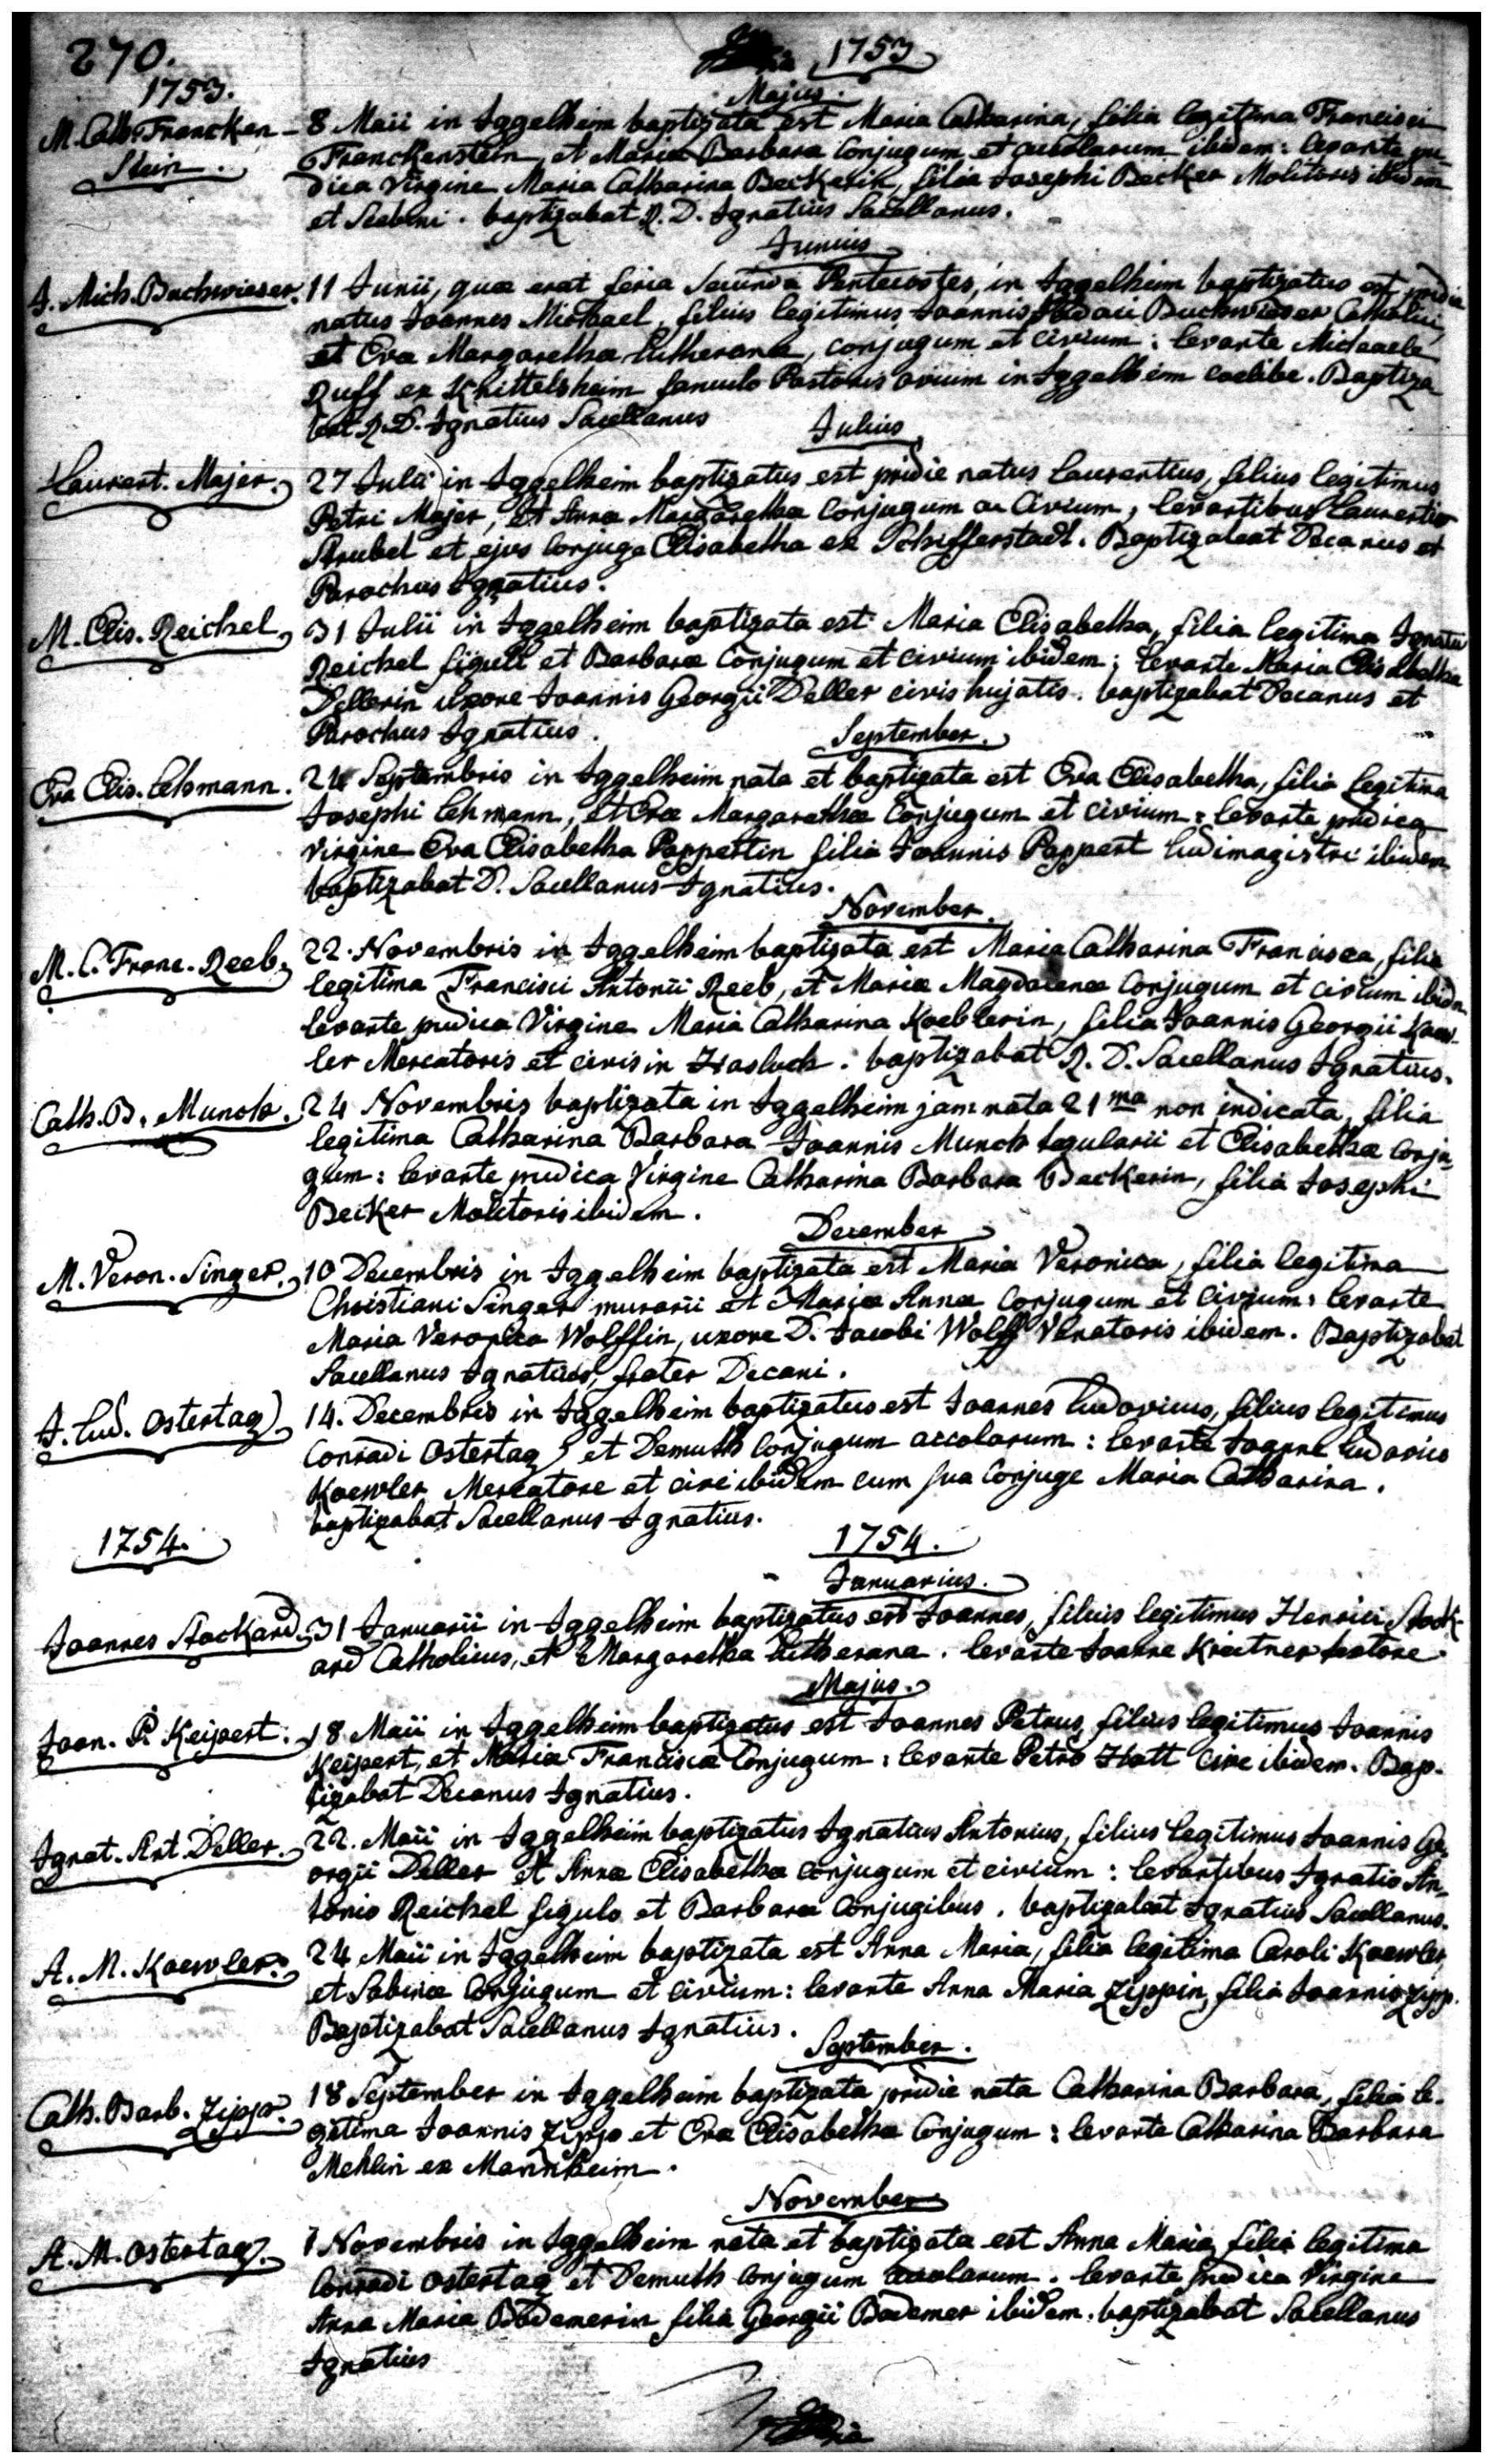 270.
1753
1753.
Majus.
M. Cath. Francken-
Stein.
8 Maii in Iggelheim baptizata est Maria Catharina, filia legitima Francisci
Franckenstein, et Mariæ Barbaræ Conjugum et accolarum ibidem: levante pu-
dica Virgine Maria Catharina Beckerin, filia Josephi Becker Molitoris ibidem
et Scabini. baptizabat R. D. Ignatius Sacellanus.
Junius
J. Mich. Buchwieser.
11 Junii, quæ erat feria secunda Pentecostes, in Iggelheim baptizatus est pridie
natus Joannes Michael, filius legitimus Joannis Buchwieser Catholici,
et Evæ Margarethæ Lutheranæ, conjugum et civium: levante Michaele
Ruff ex Knittelsheim famulo Pastoris ovium in Iggelheim coelibe. Baptiza
bat R. D. Ignatius Sacellanus
Julius
Laurent. Majer.
27 Julii in Iggelheim baptizatus est pridie natus Laurentius, filius legitimus
Petri Majer, et Annæ Margarethæ Conjugum ac Civium, levantibus Laurentio
Strubel et ejus Conjuge Elisabetha ex Schifferstadt. Baptizabat Decanus et
Parochus Ignatius.
M. Elis. Reichel
31 Julii in Iggelheim baptizata est Maria Elisabetha, filia legitima Ignatii
Reichel figuli et Barbaræ Conjugum et civium ibidem; levante Maria Elisabetha
Dellerin uxore Joannis Georgii Deller civis hujatis. baptizabat Decanus et
Parochus Ignatius.
September.
Eva Elis. Lehmann.
24 Septembris in Iggelheim nata et baptizata est Eva Elisabetha, filia legitima
Josephi Lehmann, et Evæ Margarethæ Conjugum et civium: levante pudica
Virgine Eva Elisabetha Poppertin filia Joannis Poppert ludimagistri ibidem
baptizabat D. Sacellanus Ignatius.
November.
M. C. Franc. Reeb.
22. Novembris in Iggelheim baptizata est Maria Catharina Francisca, filia
legitima Francisci Antonii Reeb, et Mariæ Magdalenæ Conjugum et civium ibidm
levante pudica Virgine Maria Catharina Koeblerin, filia Joannis Georgii Koew-
ler Mercatoris et civis in Hasloch. baptizabat R. D. Sacellanus Ignatius.
Cath. B. Munch.
24 Novembris baptizata in Iggelheim jam nata 21ma non indicata, filia
legitima Catharina Barbara Joannis Munch tegularii et Elisabethæ Conju-
gum: levante pudica Virgine Catharina Barbara Beckerin, filia Josephi
Becker Molitoris ibidem.
December
M. Veron. Singer.
10 Decembris in Iggelheim baptizata est Maria Veronica, filia legitima
Christiani Singer murarii et Mariæ Annæ Conjugum et Civium: levante
Maria Veronica Wolffin, uxore D. Jacobi Wolff Venatoris ibidem. Baptizabat
Sacellanus Ignatius, frater Decani.
J. Lud. Ostertag
14. Decembris in Iggelheim baptizatus est Joannes Ludovicus, filius legitimus
Conradi Ostertag, et Demuth Conjugum accolarum: levante Joanne Ludovico
Koewler Mercatore et cive ibidem cum sua Conjuge Maria Catharina.
baptizabat Sacellanus Ignatius.
1754.
1754.
Januarius.
Joannes Stockard
31 Januarii in Iggelheim baptizatus est Joannes, filius legitimus Henrici Stock-
ard Catholicus, et Margaretha Lutherana. levante Joanne Kreitner
Majus.
Joan. P. Keipert.
18 Maii in Iggelheim baptizatus est Joannes Petrus, filius legitimus Joannis
Keipert, et Maria Francisca Conjugum: levante Petro Hatt cive ibidem. Bap-
tizabat Decanus Ignatius.
Ignat. Ant. Deller.
22. Maii in Iggelheim baptizatus Ignatius Antonius, filius legitimus Joannis Ge-
orgii Deller et Annæ Elisabethæ conjugum et civium: levantibus Ignatio An-
tonio Reichel figulo et Barbara Conjugibus. baptizabat Ignatius Sacellanus.
A. M. Koewler.
24 Maii in Iggelheim baptizata est Anna Maria, filia legitima Caroli Koewler
et Sabinæ Conjugum et civium: levante Anna Maria Zippin, filia Joannis Zipp.
Baptizabat Sacellanus Ignatius.
September.
Cath. Barb. Zipp.
18 September in Iggelheim baptizata pridie nata Catharina Barbara, filia le-
gitima Joannis Zipp et Evæ Elisabethæ Conjugum: levante Catharina Barbara
Mehlin ex Mannheim.
November
A. M. Ostertag.
1 Novembris in Iggelheim nata et baptizata est Anna Maria, filia legitima
Conradi Ostertag et Demuth Conjugum accolarum. levante pudica Virgine
Anna Maria Bodemerin filia Georgii Bodemer ibidem. baptizabat Sacellanus
Ignatius